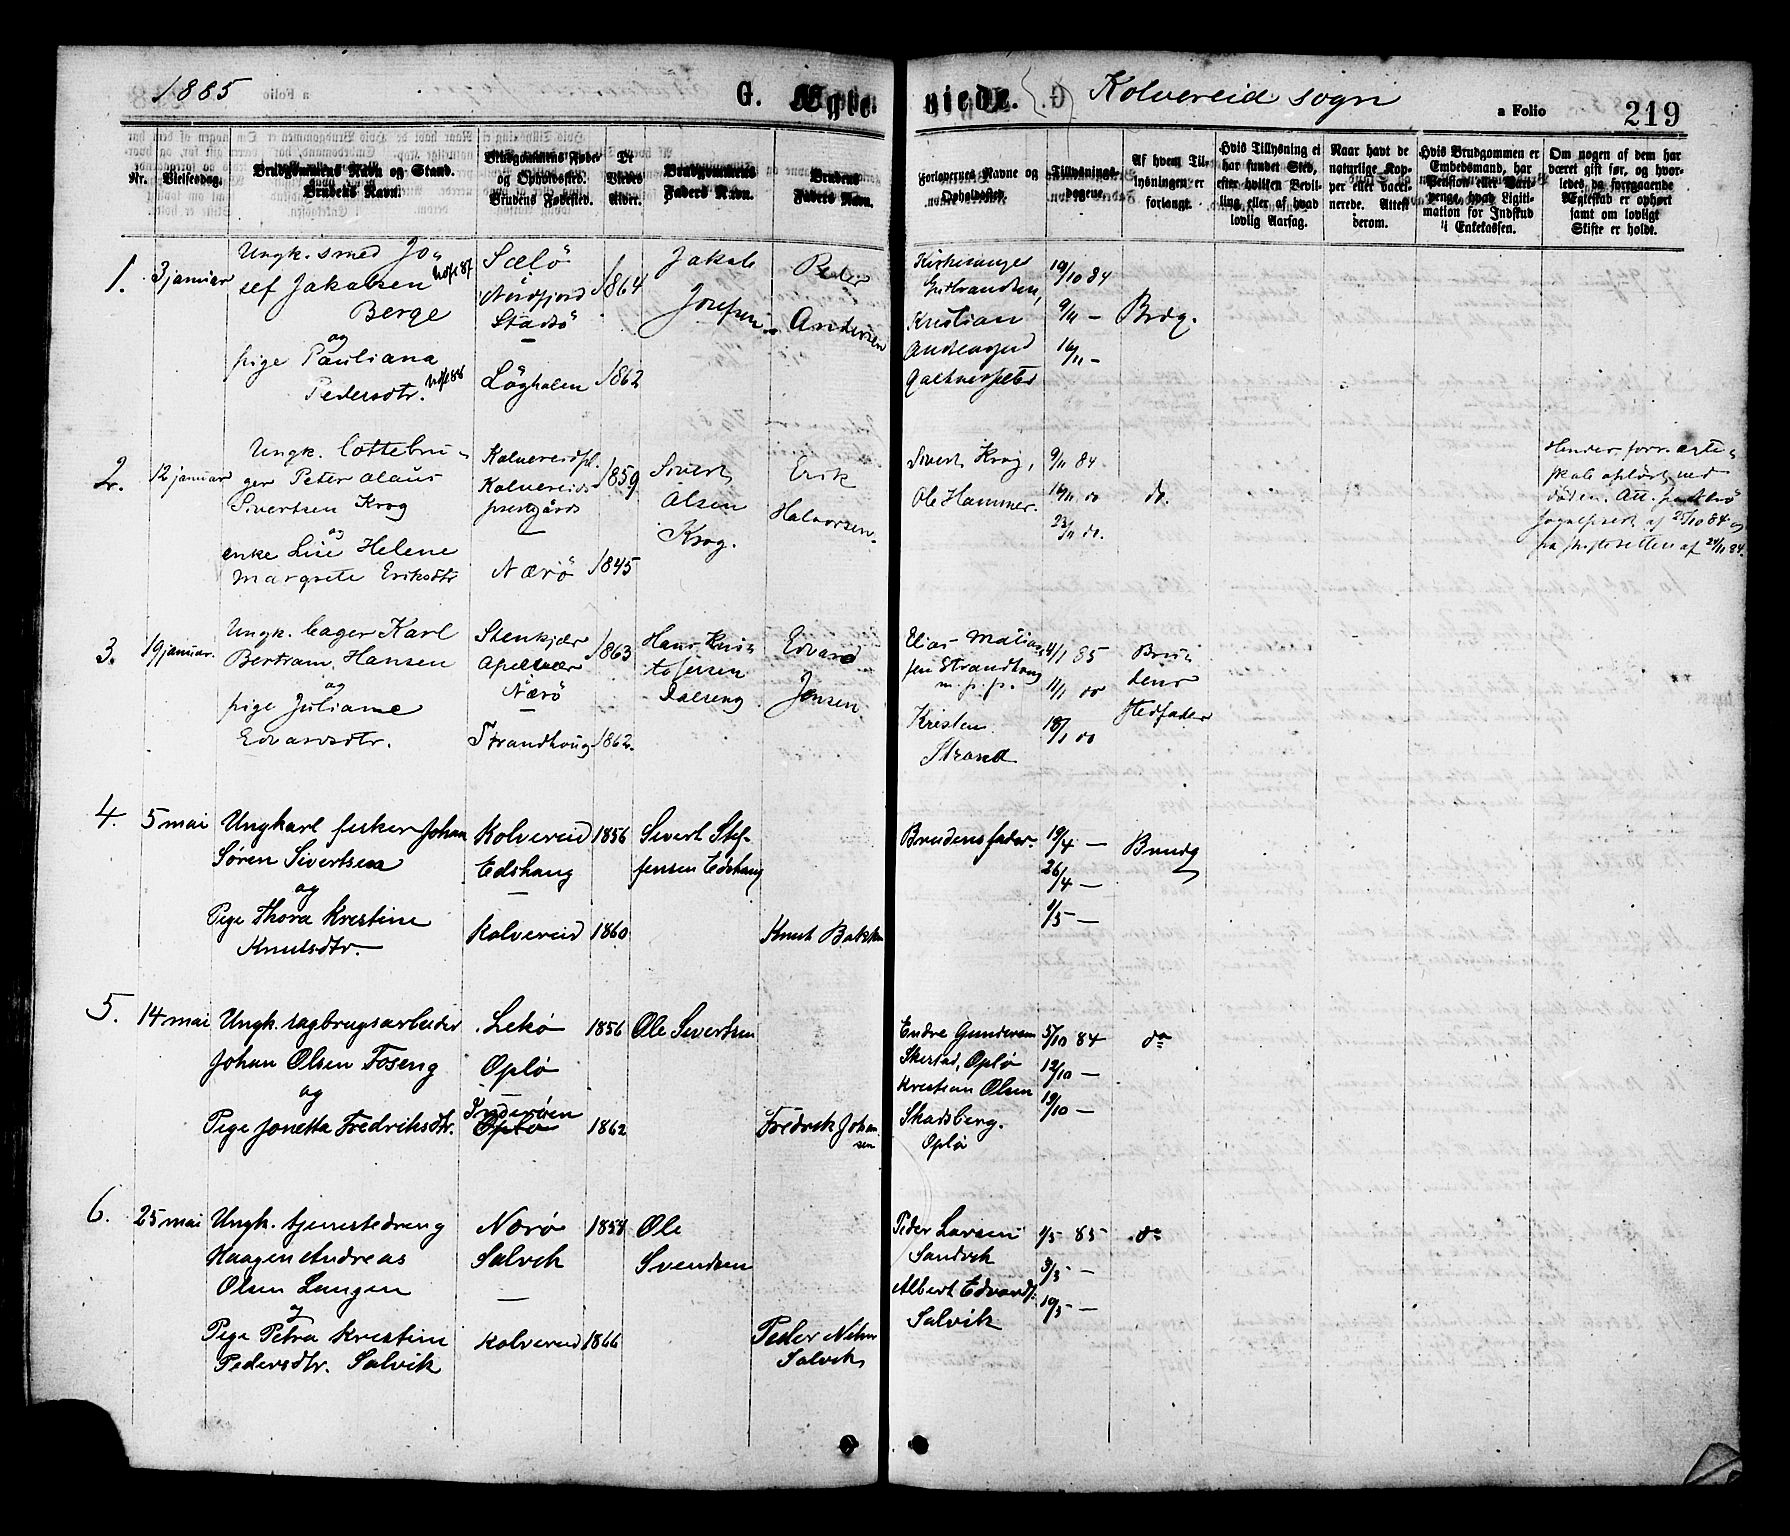 1885
G. Ægteviede.
Kolvereid sogn
a Folio 219
Nr.
Vielsesdag.
Brudgommens Navn og Stand.
Brudens Navn.
Brudgommens Føde-
og Opholdssted.
Brudens Fødested.
De
Viedes
Alder.
Brudgommens
Faders Navn.
Brudens
Faders Navn.
Forlovernes Navne og
Opholdssted.
Tillysnings-
dagene.
Af hvem Til-
lysningen er
forlangt.
Hvis Tillysning ei
har fundet Sted,
efter hvilken Bevil-
ling eller af hvad
lovlig Aarsag.
Naar havt de
naturlige Kop-
per eller vacci-
nerede. Attest
herom.
Hvis Brudgommen er
Embedsmand, har
Pension eller Vart-
penge, hvad Legiti-
mation for Indskud
i Enkekassen.
Om nogen af dem har
været gift før, og hvor-
ledes da foregaaende
Ægteskab er ophørt
samt om lovligt
Skifte er holdt.
1.
3 januar
Ungk. smed Jo-
sef Jakobsen
Berge
og
pige Pauliana
Pedersdtr.
Sælø
Nordfjord
Stadsø
Løgholen
1864
1862
Jakob
Josefsen
Peder
Andersen
Kirkesanger
Gulbrandsen,
Kristian
19/10 84
9/11 —
16/11 —
Brdg.
2.
12 januar
Ungk. lottebru-
ger Peter Olaus
Sivertsen Krog
og
enke Lise Helene
Margrete Eriksdtr
Kolvereidpl.
Kolvereids
prestgårds
Nærø
1859
1845
Sivert
Olsen
Krog.
Erik
Halvorsen.
Sivert Krog,
Ole Hammer.
9/11 84
16/11 do
23/11 do.
do.
Hendes forr. ægte-
skab opløst ved
døden. Att. fra Nærø
sogneprest af 25/10 84 og
fra skifteretten af 24/11 84.
3.
19 januar.
Ungk. bager Karl
Bertram Hansen
og
pige Juliane
Edvardsdtr.
Stenkjær
Apelvær
Nærø
Strandhoug
1863
1862.
Hans Kris-
tofersen
Dalseng
Edvard
Jensen.
Elias Matias-
sen Strandhoug
m. p. p.
Kristen
Strand
4/1 85
11/1 do
18/1 do
Bru-
dens
stedfader
4.
5 mai
Ungkarl fisker Johan
Søren Sivertsen
og
Pige Thora Kristine
Knutsdtr.
Kolvereid
Edshaug
Kolvereid
1856
1860
Sivert Stef-
fensen Edshaug
Knut Bakken
Brudens fader
19/4 —
26/4 —
1/5 —
Brudg
5.
14 mai
Ungk. sagbrugsarbeider
Johan Olsen Foseng
og
Pige Jonetta Fredriksdtr.
Lekø
Opló
Inderøen
Opló
1856
1862
Ole Sivertsen
Fredrik Johan-
sen
Endre Gundersen
Skestad, Opló
Kristian Olsen
Skadsberg.
Opló
5/10 84
12/10 —
19/10 —
do
6.
25 mai
Ungk. tjenestedreng
Haagen Andreas
Olsen Langen
og
Pige Petra Kristine
Pedersdtr. Salvik
Nærø
Salvik
Kolvereid
1858
1866
Ole
Svendsen
Peder
Salvik
Peder Larsen
Sandvik
Albert Edvards.
Salvik
1/5 85
3/5 —
10/5 —
do